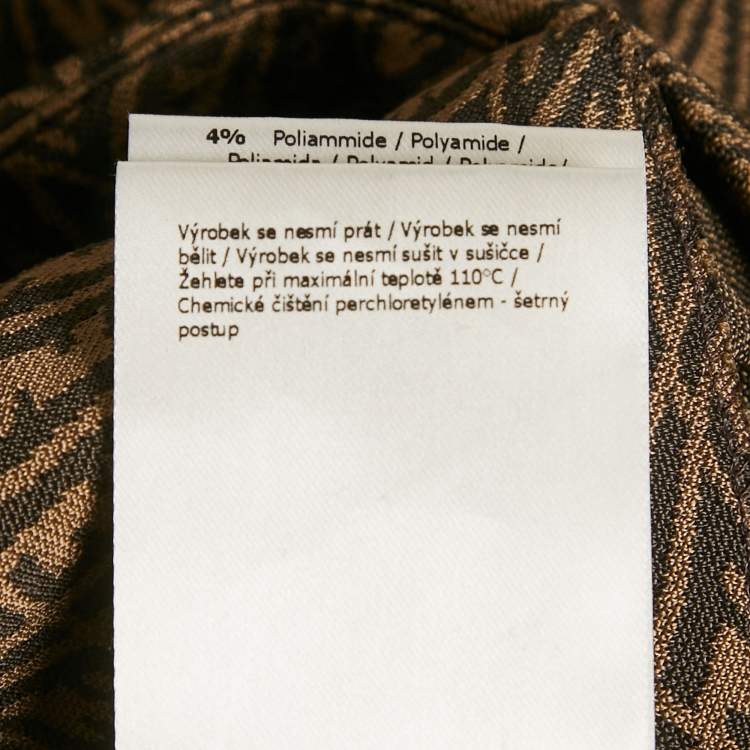 4% Poliammide / Polyamide /
Poliamida / Polyamid / Polyamide/
Výrobek se nesmí prát / Výrobek se nesmí
bělit / Výrobek se nesmí sušit v sušičce /
Žehlete při maximální teplotě 110°C /
Chemické čištění perchloretylénem - šetrný
postup